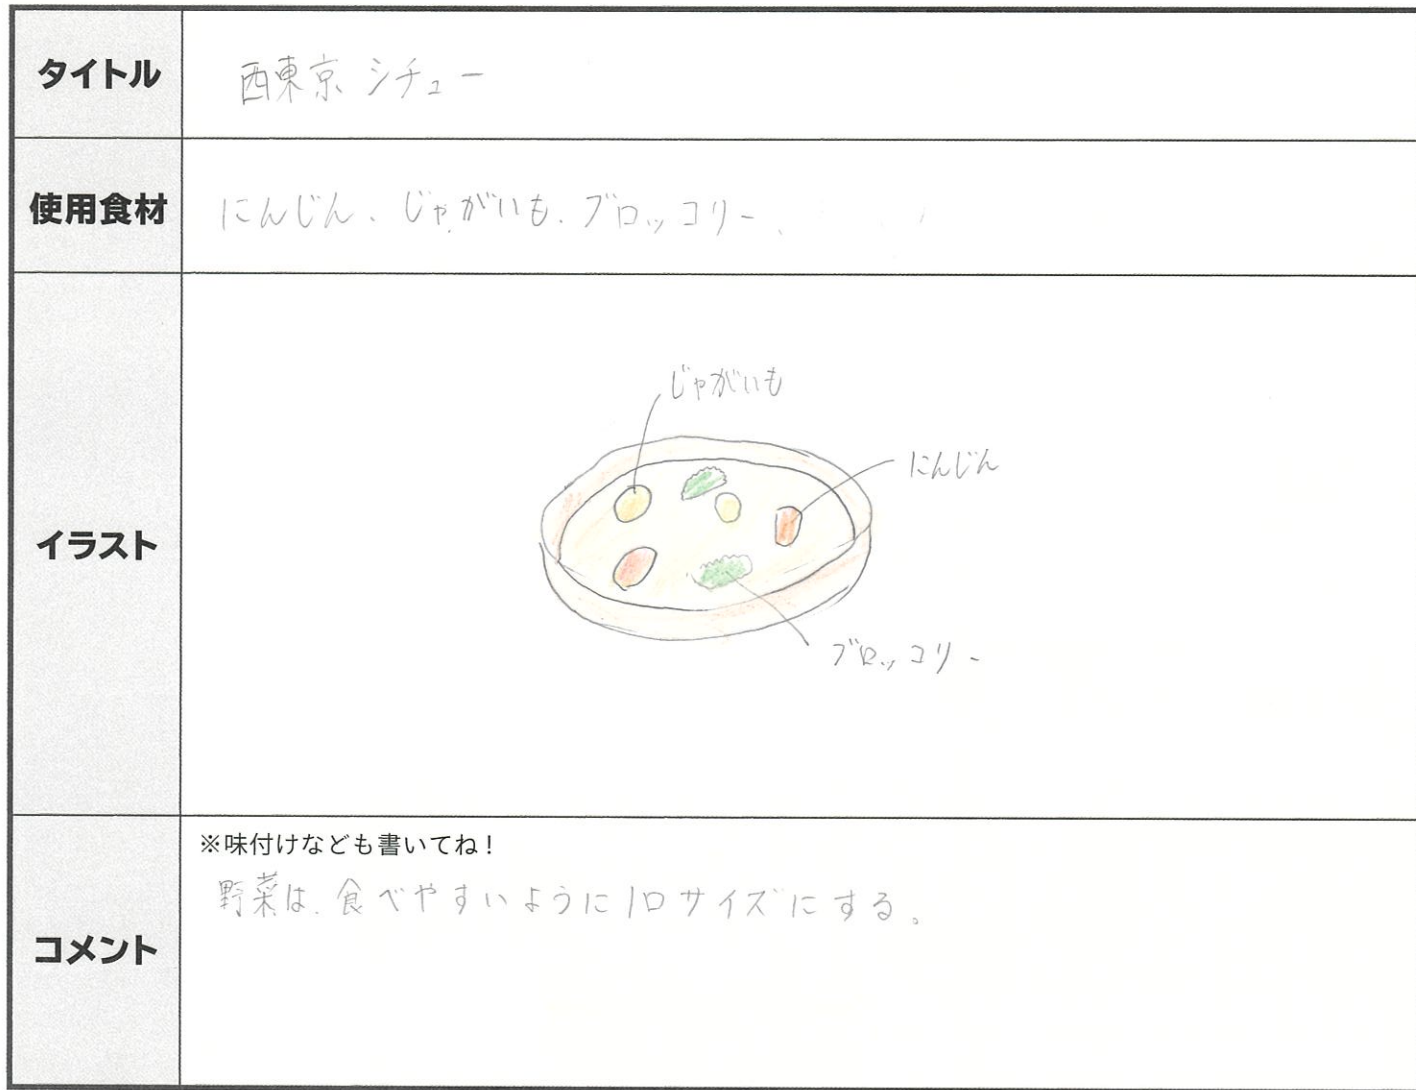 タイトル
西東京シチュー
使用食材
にんじん、じゃがいも、ブロッコリー、
イラスト
じゃがいも
にんじん
ブロッコリー
コメント
※味付けなども書いてね！
野菜は、食べやすいように1口サイズにする。